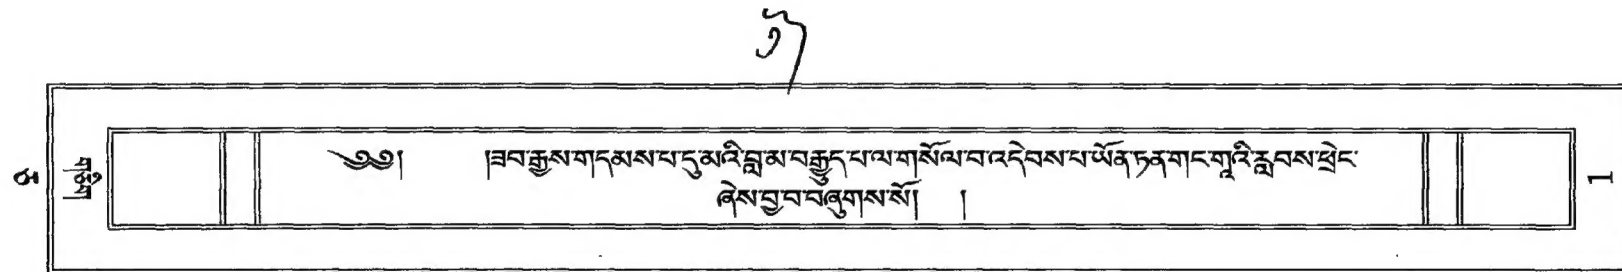 ༄༅། །ཟབ་རྒྱས་གདམས་པ་དུ་མའི་བླ་མ་བརྒྱུད་པ་ལ་གསོལ་བ་འདེབས་པ་ཡོན་ཏན་གངྒཱའི་རླབས་ཕྲེང་
ཞེས་བྱ་བ་བཞུགས་སོ། །
གཅིག
1